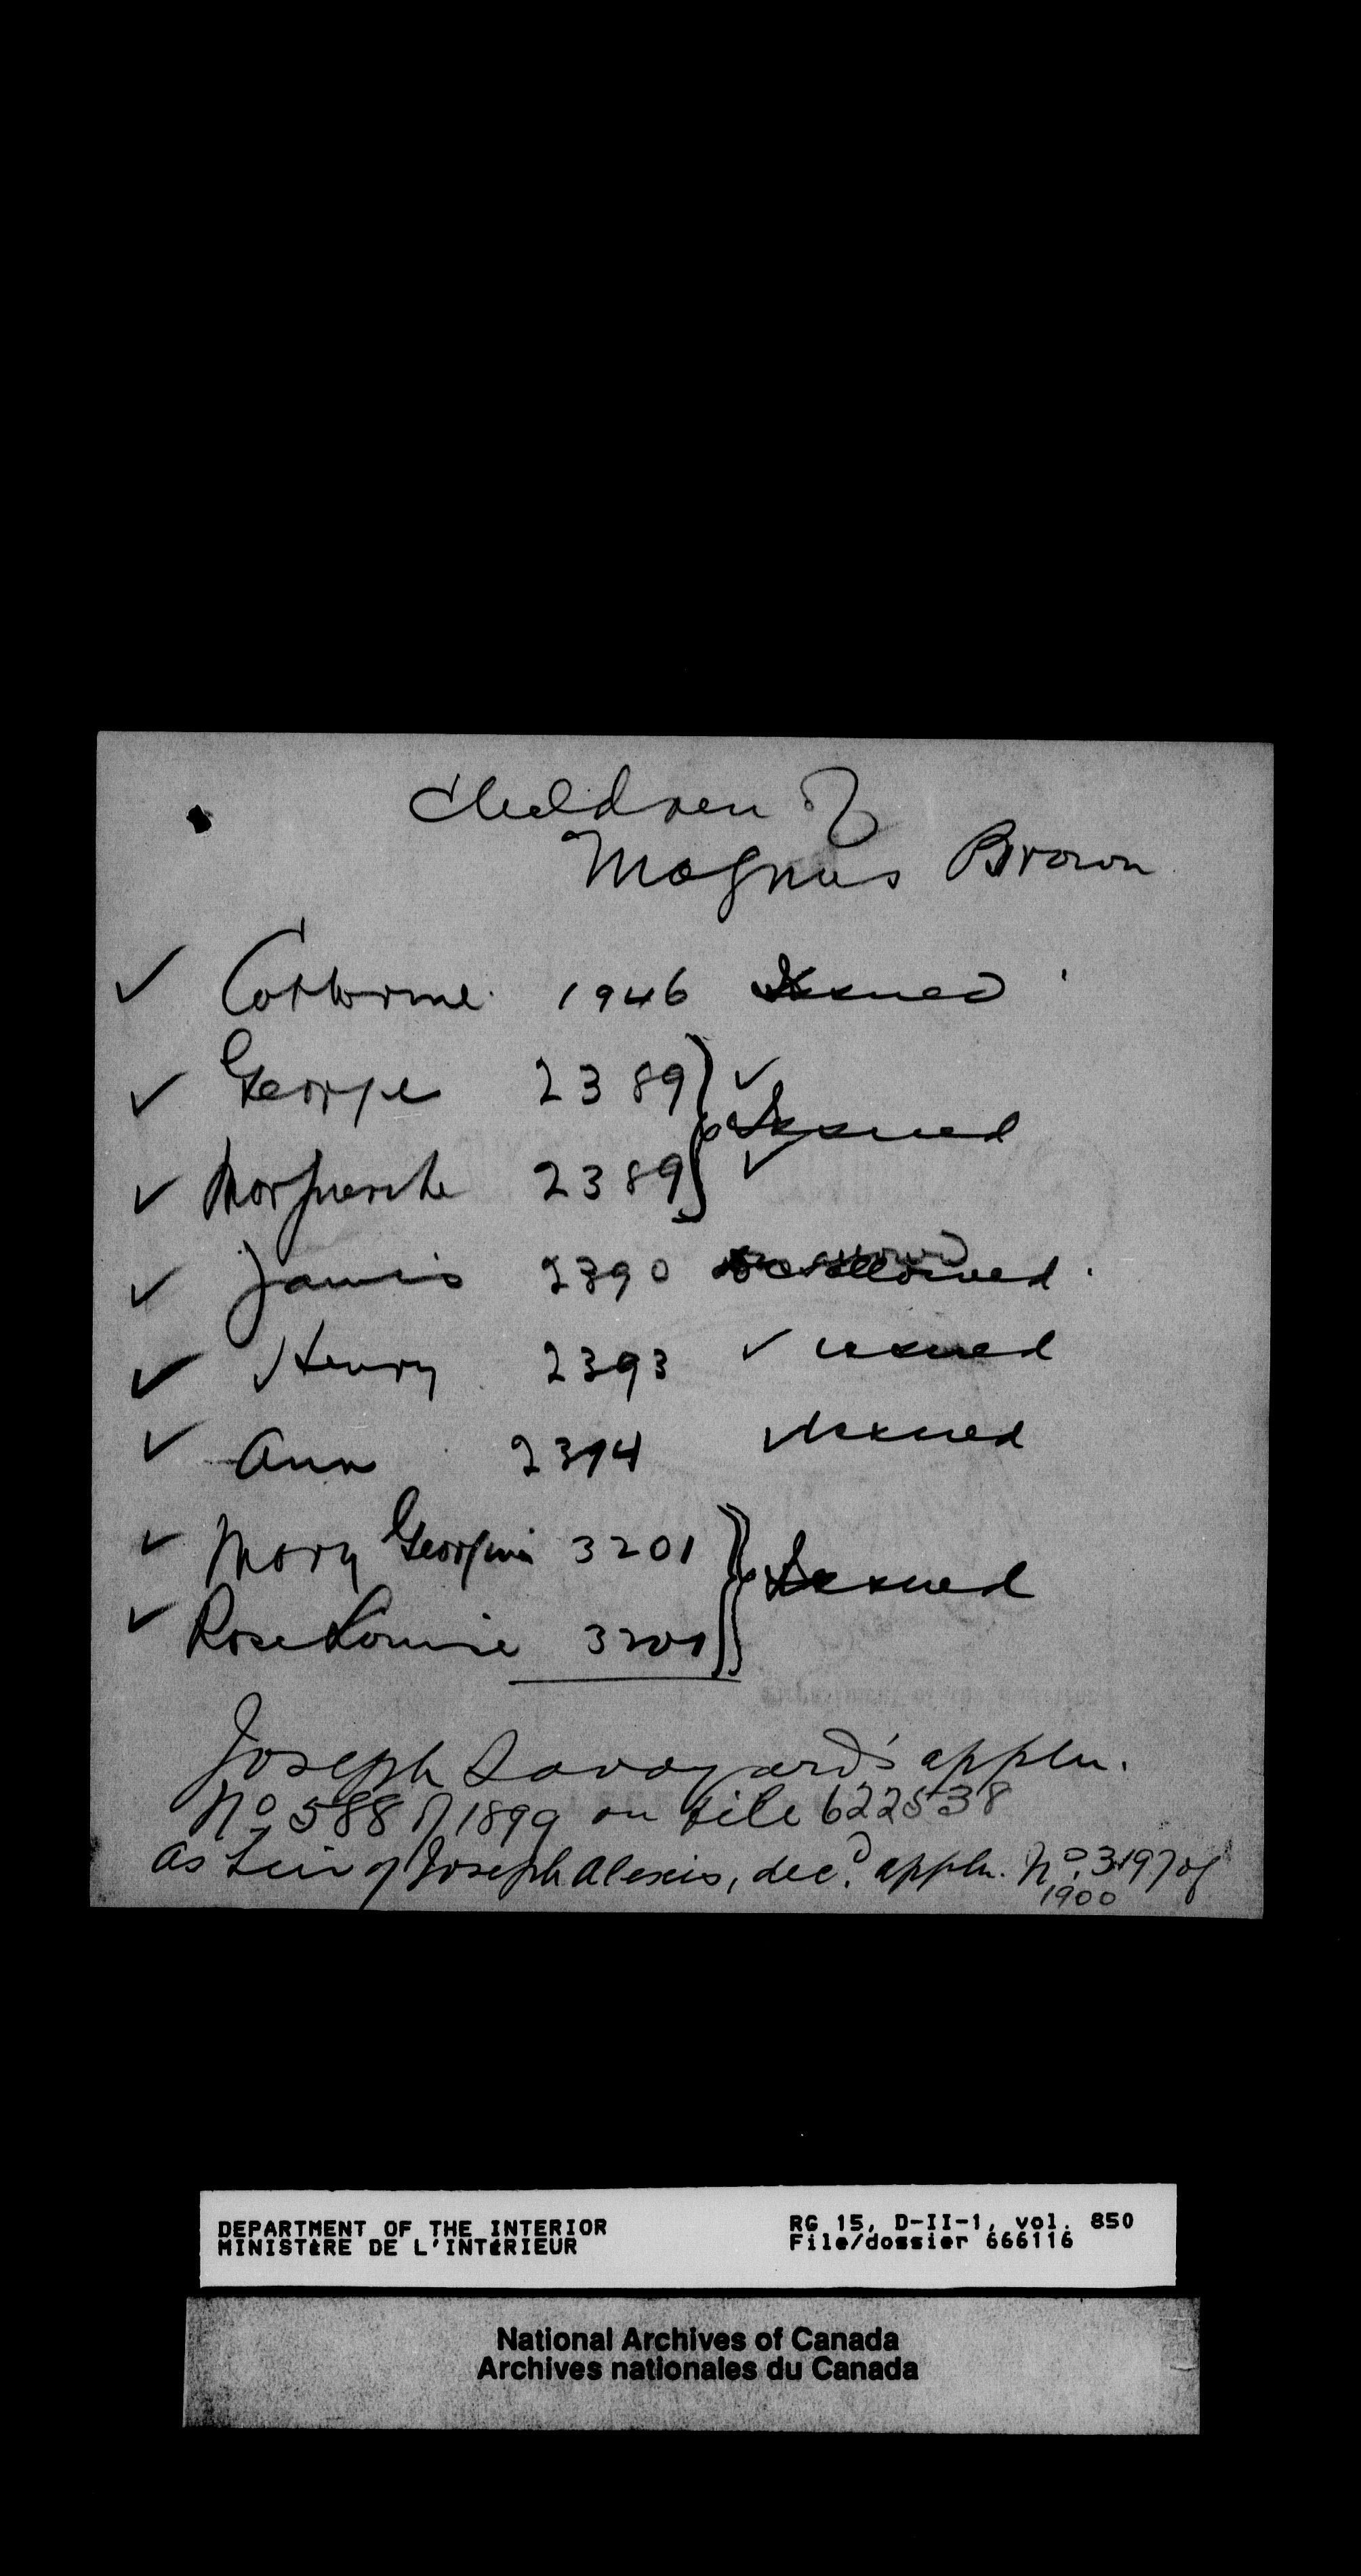 Children of
Magnus Brown
✓ Catherine 1946 Issued
✓ George 2389 ✓
Issued
✓ Marguerite 2389 ✓
✓ James 2390 Disallowed
✓ Henry 2393 ✓ issued
✓ Ann 2394 ✓ issued
✓ Mary Georgina 3201
Issued
✓ Rose Louise 3201
Joseph Savoyard's appln.
No. 588 of 1899 on file 622538
as heir of Joseph Alexis, decd. appln. No. 3197 of
1900
DEPARTMENT OF THE INTERIOR
MINISTÈRE DE L'INTÉRIEUR
RG 15, D-II-1, vol. 850
File/dossier 666116
National Archives of Canada
Archives nationales du Canada